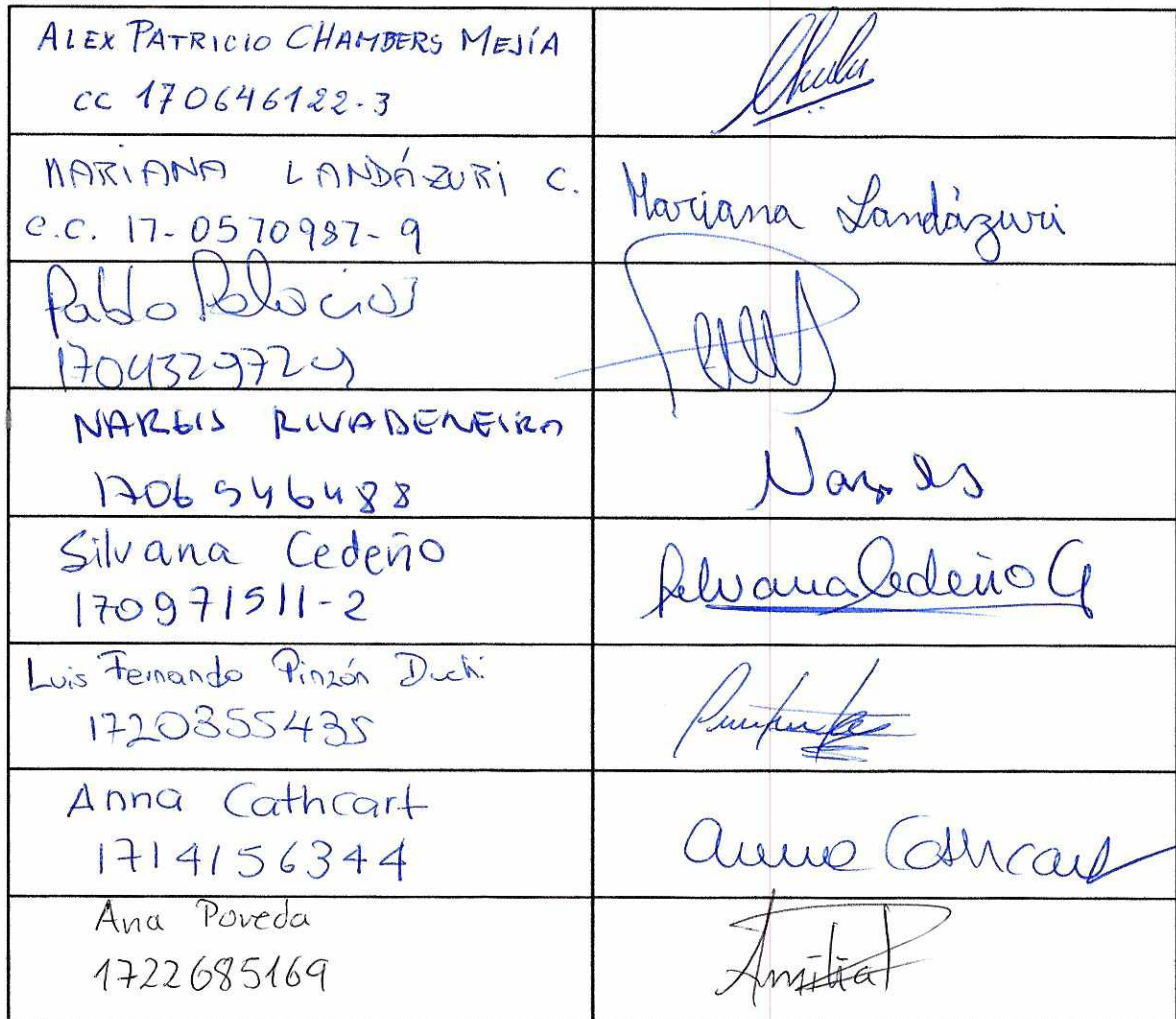 ALEX PATRICIO CHAMBERS MEJÍA
CC 170646122-3
MARIANA LANDÁZURI C.
C.C. 17-0570987-9
Mariana Landázuri
Pablo Palacios
1704329729
NARGIS RIVADENEIRA
1706546488
Nargis
Silvana Cedeño
170971511-2
Silvana Cedeño G
Luis Fernando Pinzón Duchi
1720355435
Anna Cathcart
1714156344
Anna Cathcart
Ana Poveda
1722685169